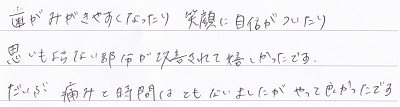 歯がみがきやすくなったり 笑顔に自信がついたり
思いもよらない部分が改善されて嬉しかったです。
だいぶ 痛みと時間はともないましたが やって良かったです